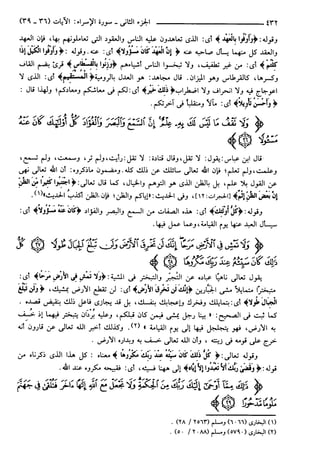 ٤٣٢ الجزء الثاني - سورة الإسراء: الآيات (٣٦ - ٣٩)
وقوله: ﴿وَأَوْفُوا بِالْعَهْدِ﴾ أي: الذي تعاهدون عليه الناس والعقود التي تعاملونهم بها، فإن العهد
والعقد كل منهما يسأل صاحبه عنه ﴿إِنَّ الْعَهْدَ كَانَ مَسْؤُولًا﴾ أي: عنه. وقوله: ﴿وَأَوْفُوا الْكَيْلَ إِذَا
كِلْتُمْ﴾ أي: من غير تطفيف، ولا تبخسوا الناس أشياءهم ﴿وَزِنُوا بِالْقِسْطَاسِ﴾ قرئ بضم القاف
وكسرها، كالقرطاس وهو الميزان. قال مجاهد: هو العدل بالرومية ﴿الْمُسْتَقِيمِ﴾ أي: الذي لا
اعوجاج فيه ولا انحراف ولا اضطراب ﴿ذَلِكَ خَيْرٌ﴾ أي: لكم في معاشكم ومعادكم؛ ولهذا قال:
﴿وَأَحْسَنُ تَأْوِيلًا﴾ أي: مآلاً ومنقلباً في آخرتكم.
﴿وَلَا تَقْفُ مَا لَيْسَ لَكَ بِهِ عِلْمٌ إِنَّ السَّمْعَ وَالْبَصَرَ وَالْفُؤَادَ كُلُّ أُولَئِكَ كَانَ عَنْهُ
مَسْؤُولًا ﴿٣٦﴾﴾
قال ابن عباس: يقول: لا تقل، وقال قتادة: لا تقل: رأيت، ولم تر، وسمعت، ولم تسمع،
وعلمت، ولم تعلم؛ فإن الله تعالى سائلك عن ذلك كله. ومضمون ماذكروه: أن الله تعالى نهى
عن القول بلا علم، بل بالظن الذي هو التوهم والخيال، كما قال تعالى: ﴿اجْتَنِبُوا كَثِيرًا مِنَ الظَّنِّ
إِنَّ بَعْضَ الظَّنِّ إِثْمٌ﴾ [الحجرات: ١٢]، وفي الحديث: «إياكم والظن؛ فإن الظن أكذب الحديث»(١).
وقوله: ﴿كُلُّ أُولَئِكَ﴾ أي: هذه الصفات من السمع والبصر والفؤاد ﴿كَانَ عَنْهُ مَسْؤُولًا﴾ أي:
سيسأل العبد عنها يوم القيامة، وعما عمل فيها.
﴿وَلَا تَمْشِ فِي الْأَرْضِ مَرَحًا إِنَّكَ لَنْ تَخْرِقَ الْأَرْضَ وَلَنْ تَبْلُغَ الْجِبَالَ طُولًا ﴿٣٧﴾ كُلُّ
ذَلِكَ كَانَ سَيِّئُهُ عِنْدَ رَبِّكَ مَكْرُوهًا ﴿٣٨﴾﴾
يقول تعالى ناهياً عباده عن التجبّر والتبختر في المشية: ﴿وَلَا تَمْشِ فِي الْأَرْضِ مَرَحًا﴾ أي:
متبختراً متمايلاً مشي الجبّارين ﴿إِنَّكَ لَنْ تَخْرِقَ الْأَرْضَ﴾ أي: لن تقطع الأرض بمشيك، ﴿وَلَنْ تَبْلُغَ
الْجِبَالَ طُولًا﴾ أي: بتمايلك وفخرك وإعجابك بنفسك، بل قد يجازى فاعل ذلك بنقيض قصده.
كما ثبت في الصحيح: «بينا رجل يمشي فيمن كان قبلكم، وعليه بُردان يتبختر فيهما إذ خسف
به الأرض، فهو يتجلجل فيها إلى يوم القيامة»(٢). وكذلك أخبر الله تعالى عن قارون أنه
خرج على قومه في زينته، وأن الله تعالى خسف به وبداره الأرض.
وقوله تعالى: ﴿كُلُّ ذَلِكَ كَانَ سَيِّئُهُ عِنْدَ رَبِّكَ مَكْرُوهًا﴾ معناه: كل هذا الذي ذكرناه من
قوله: ﴿وَقَضَى رَبُّكَ أَلَّا تَعْبُدُوا إِلَّا إِيَّاهُ﴾ إلى ههنا فسيئه، أي: فقبيحه مكروه عند الله.
﴿ذَلِكَ مِمَّا أَوْحَى إِلَيْكَ رَبُّكَ مِنَ الْحِكْمَةِ وَلَا تَجْعَلْ مَعَ اللَّهِ إِلَهًا آخَرَ فَتُلْقَى فِي جَهَنَّمَ
مَلُومًا مَدْحُورًا ﴿٣٩﴾﴾
(١) البخاري (٦٠٦٦) ومسلم (٢٥٦٣ / ٢٨).
(٢) البخاري (٥٧٩٠) ومسلم (٢٠٨٨ / ٥٠).